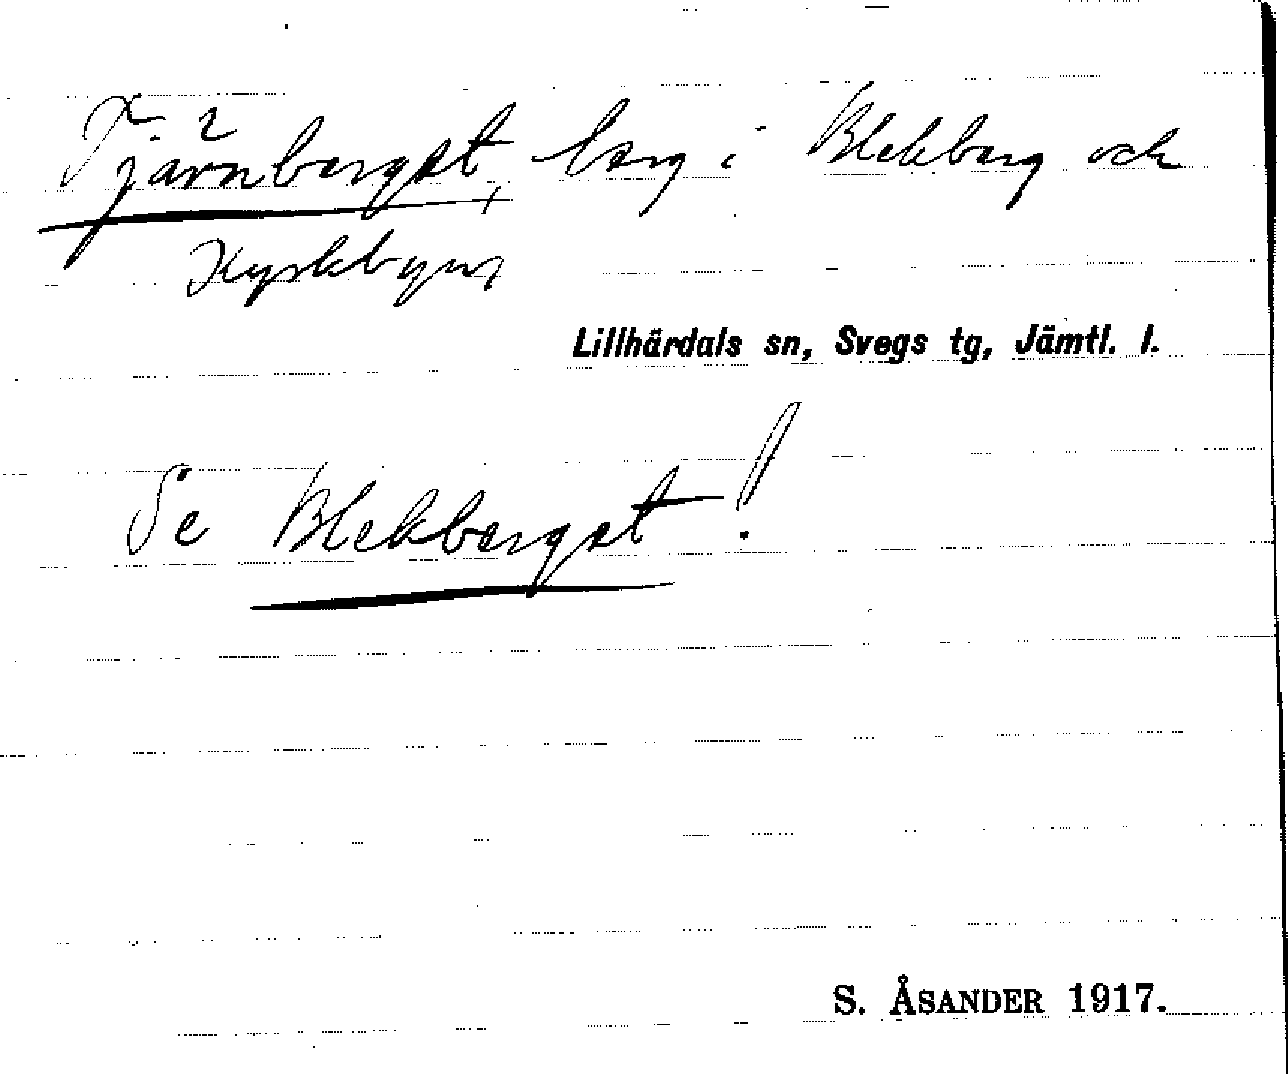 Tjärnberget, berg i Blekberg och
Kyrkbyns
Lillhärdals sn, Svegs tg, Jämtl. l.
Se Blekberget!
S. ÅSANDER 1917.